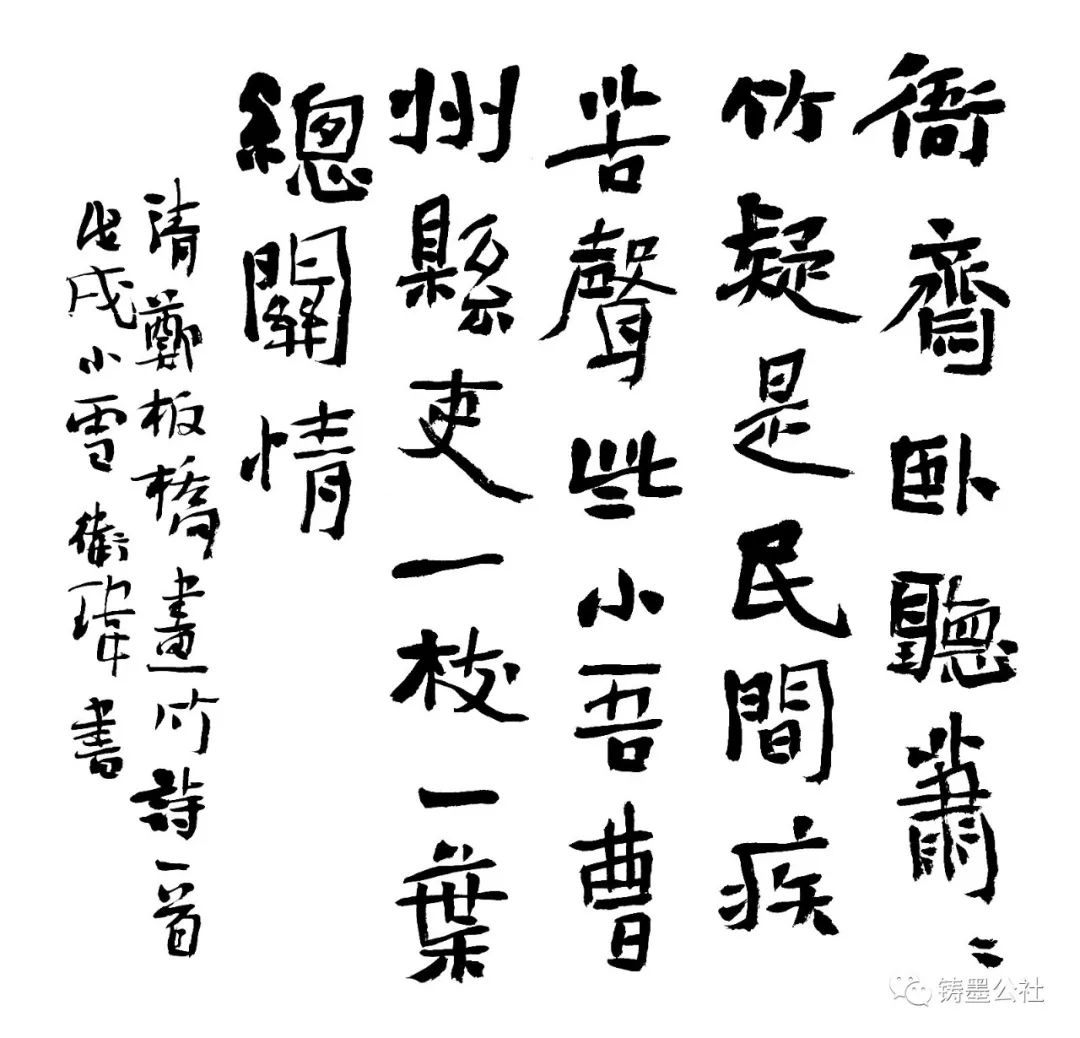 衙齋卧聽蕭〻
竹疑是民間疾
苦聲些小吾曹
州縣吏一枝一葉
總關情
清鄭板橋畫竹詩一首
戊戌小雪衛瑋書
铸墨公社